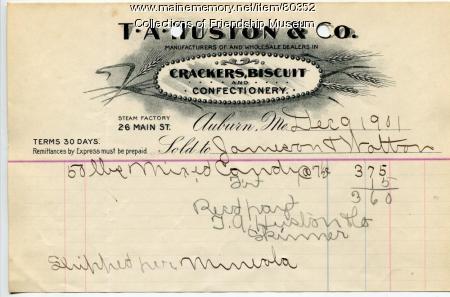 www.mainememory.net/item/80352
Collections of Friendship Museum
T. A. HUSTON & CO.
MANUFACTURERS OF AND WHOLESALE DEALERS IN
CRACKERS, BISCUIT
AND
CONFECTIONERY.
STEAM FACTORY
26 MAIN ST.
Auburn, Me. Dec 9 1901
TERMS 30 DAYS.
Remittances by Express must be prepaid.
Sold to Jameson & Wotton
50 lbs Mixed Candy @ 7½ 3 75
15
3 60
Recd payt
T. A. Huston & Co
Skinner
Shipped per Mineola